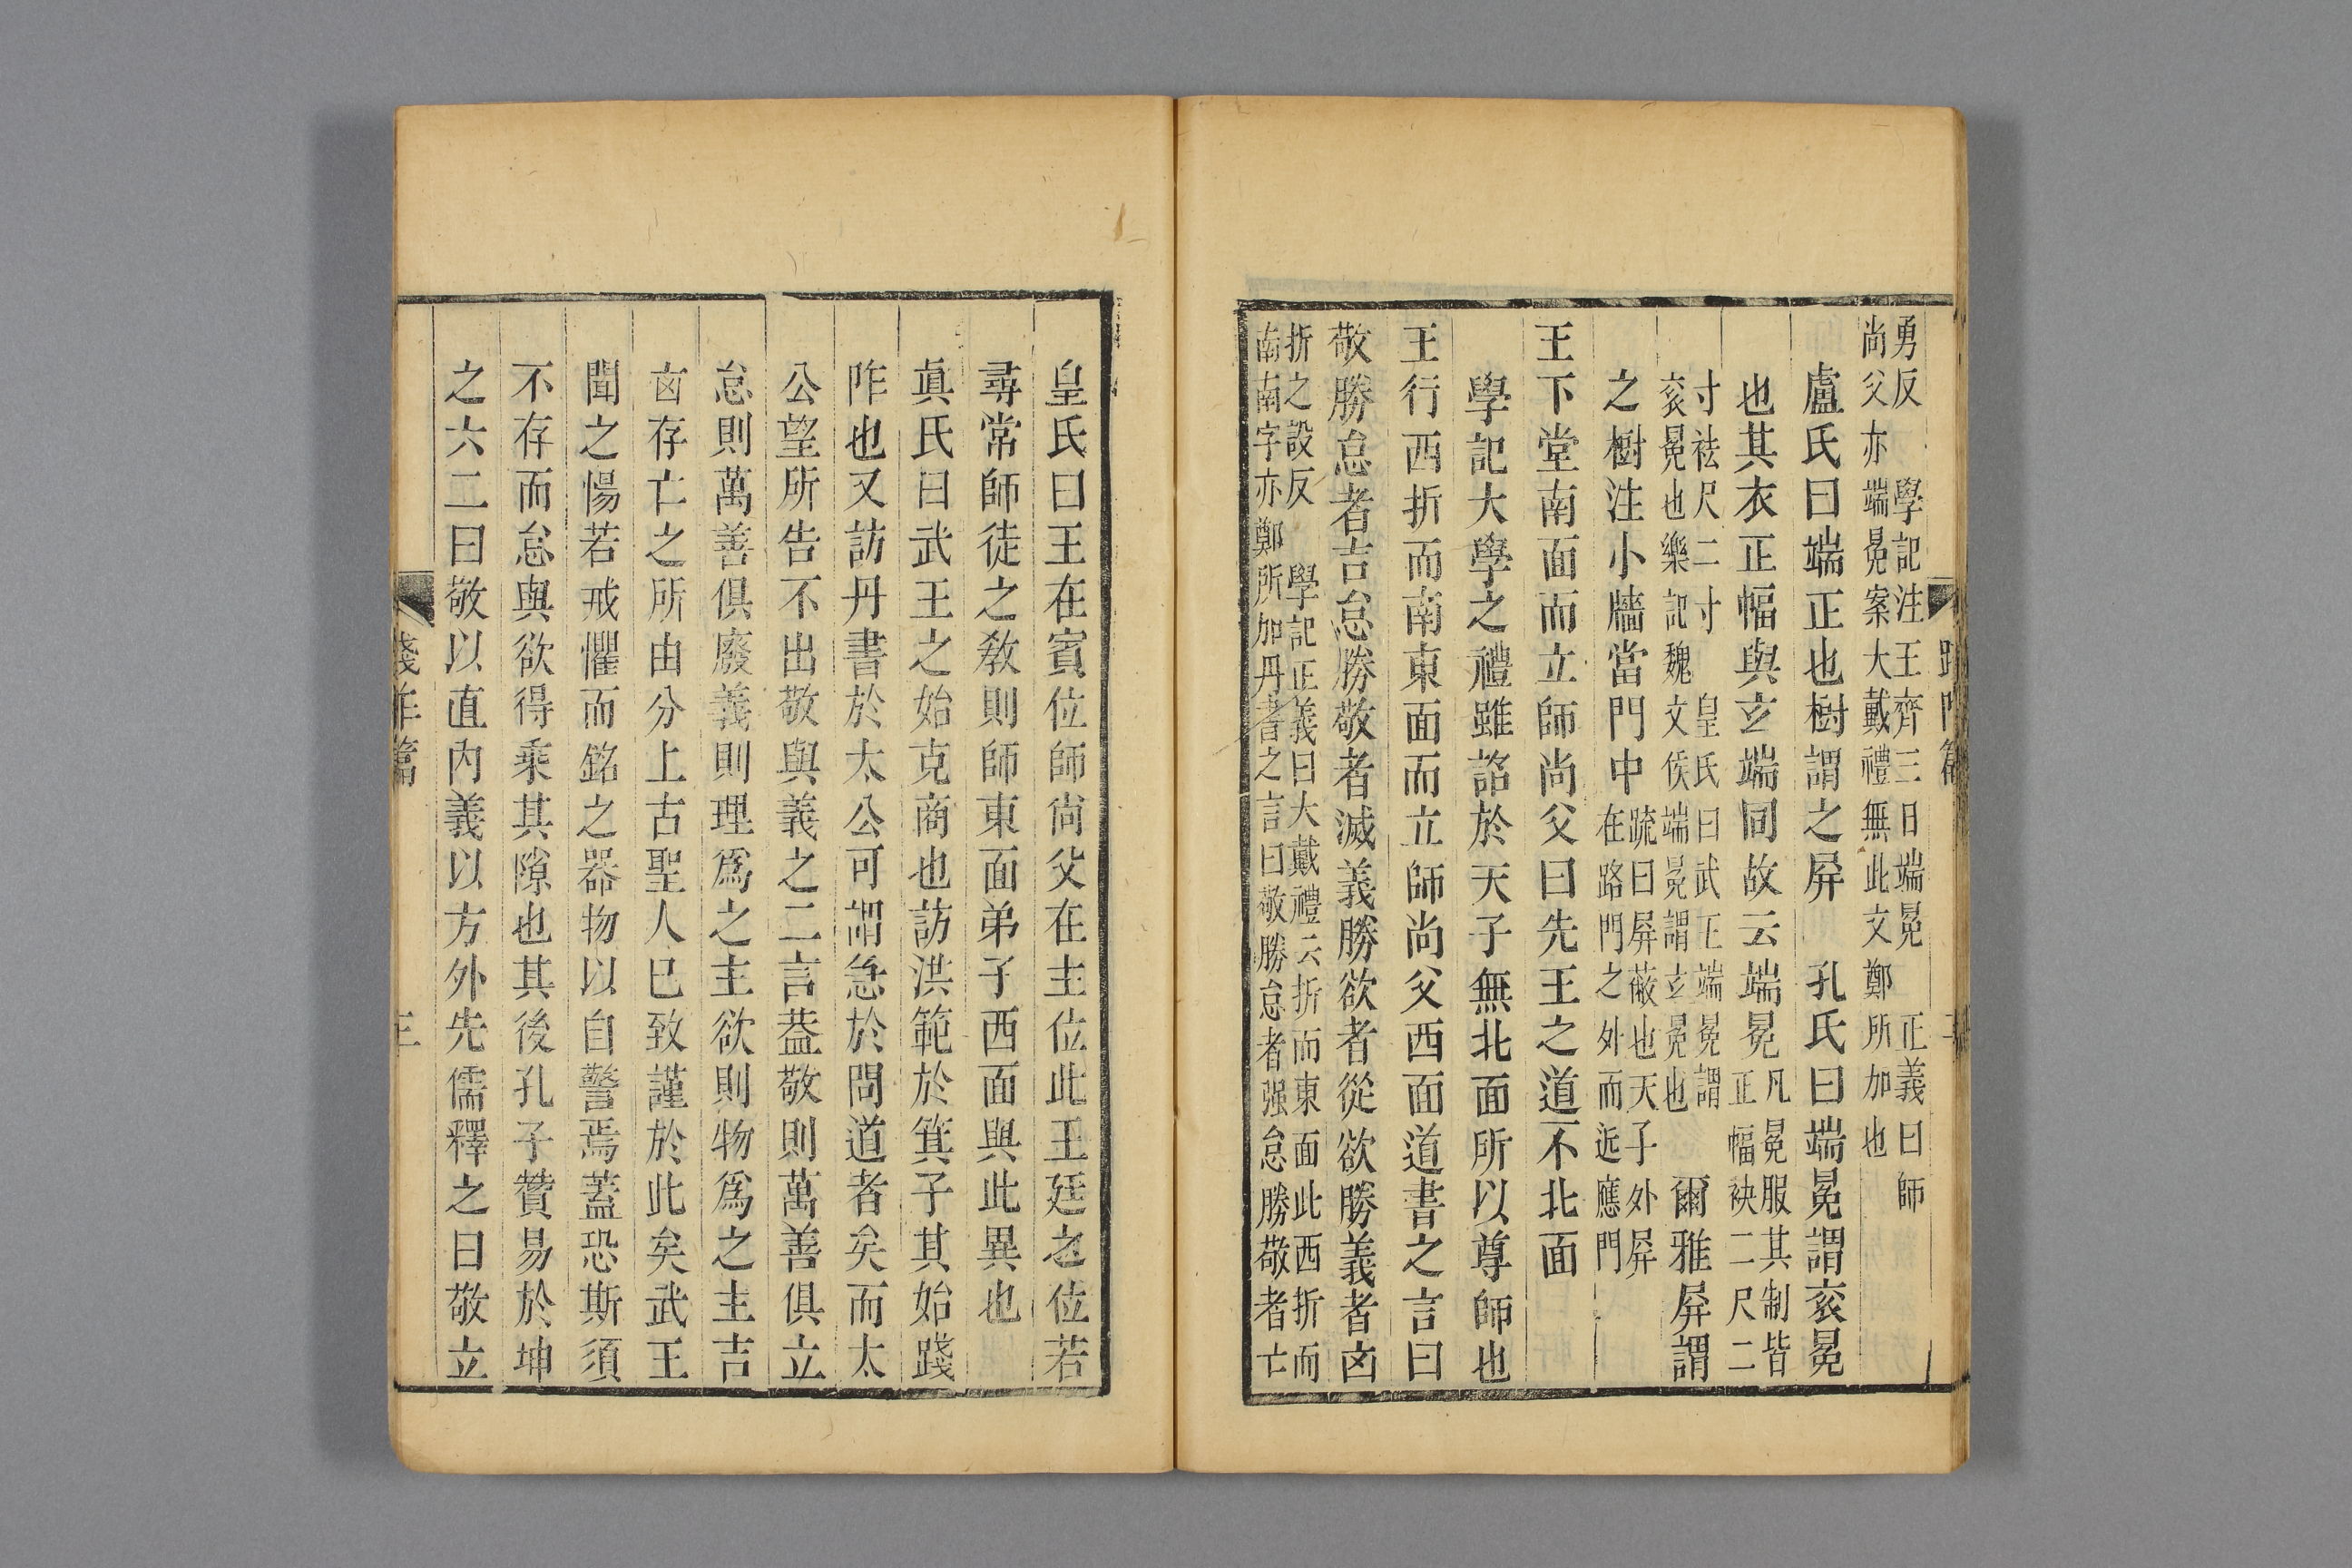 勇反　學記注王齊三日端冕　正義曰師
尚父亦端冕案大戴禮無此文鄭所加也
盧氏曰端正也樹謂之屏　孔氏曰端冕謂衮冕
也其衣正幅與玄端同故云端冕凡冕服其制皆
正幅袂二尺二
寸袪尺二寸　皇氏曰武王端冕謂
衮冕也樂記魏文侯端冕謂玄冕也　爾雅屏謂
之樹注小牆當門中疏曰屏蔽也天子外屏
在路門之外而近應門
王下堂南面而立師尚父曰先王之道不北面
學記大學之禮雖詔於天子無北面所以尊師也
王行西折而南東面而立師尚父西面道書之言曰
敬勝怠者吉怠勝敬者滅義勝欲者從欲勝義者凶
折之設反　學記正義曰大戴禮云折而東面此西折而
南南字亦鄭所加丹書之言曰敬勝怠者强怠勝敬者亡
皇氏曰王在賓位師尚父在主位此王廷之位若
尋常師徒之敎則師東面弟子西面與此異也
眞氏曰武王之始克商也訪洪範於箕子其始踐
阼也又訪丹書於太公可謂急於問道者矣而太
公望所告不出敬與義之二言葢敬則萬善俱立
怠則萬善俱廢義則理爲之主欲則物爲之主吉
凶存亡之所由分上古聖人已致謹於此矣武王
聞之惕若戒懼而銘之器物以自警焉蓋恐斯須
不存而怠與欲得乘其隙也其後孔子贊易於坤
之六二曰敬以直内義以方外先儒釋之曰敬立
踐阼篇
三